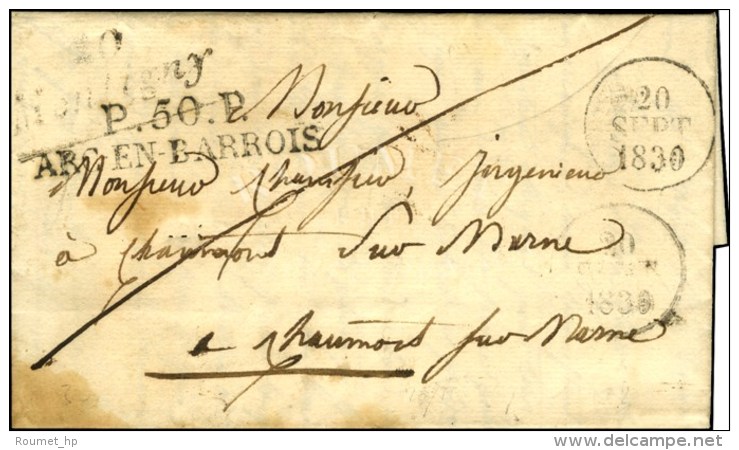 Montigny
P.50.P.
ARC-EN-BARROIS
20
SEPT
1830
Monsieur
Monsieur
à Chaumont Sur Marne
20
1830
a Chaumont sur Marne
Roumet_hp
delcampe.net